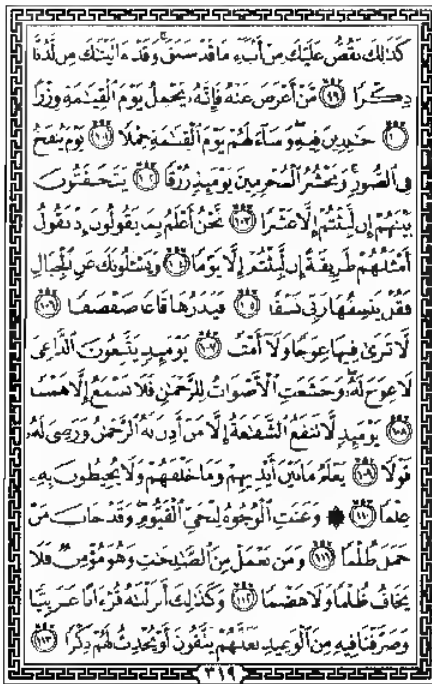 كَذَٰلِكَ نَقُصُّ عَلَيْكَ مِنْ أَنۢبَآءِ مَا قَدْ سَبَقَ ۚ وَقَدْ ءَاتَيْنَٰكَ مِن لَّدُنَّا
ذِكْرًا ﴿٩٩﴾ مَّنْ أَعْرَضَ عَنْهُ فَإِنَّهُۥ يَحْمِلُ يَوْمَ ٱلْقِيَٰمَةِ وِزْرًا
﴿١٠٠﴾ خَٰلِدِينَ فِيهِ ۖ وَسَآءَ لَهُمْ يَوْمَ ٱلْقِيَٰمَةِ حِمْلًا ﴿١٠١﴾ يَوْمَ يُنفَخُ
فِى ٱلصُّورِ ۚ وَنَحْشُرُ ٱلْمُجْرِمِينَ يَوْمَئِذٍ زُرْقًا ﴿١٠٢﴾ يَتَخَٰفَتُونَ
بَيْنَهُمْ إِن لَّبِثْتُمْ إِلَّا عَشْرًا ﴿١٠٣﴾ نَّحْنُ أَعْلَمُ بِمَا يَقُولُونَ إِذْ يَقُولُ
أَمْثَلُهُمْ طَرِيقَةً إِن لَّبِثْتُمْ إِلَّا يَوْمًا ﴿١٠٤﴾ وَيَسْـَٔلُونَكَ عَنِ ٱلْجِبَالِ
فَقُلْ يَنسِفُهَا رَبِّى نَسْفًا ﴿١٠٥﴾ فَيَذَرُهَا قَاعًا صَفْصَفًا ﴿١٠٦﴾
لَّا تَرَىٰ فِيهَا عِوَجًا وَلَآ أَمْتًا ﴿١٠٧﴾ يَوْمَئِذٍ يَتَّبِعُونَ ٱلدَّاعِىَ
لَا عِوَجَ لَهُۥ ۖ وَخَشَعَتِ ٱلْأَصْوَاتُ لِلرَّحْمَٰنِ فَلَا تَسْمَعُ إِلَّا هَمْسًا
﴿١٠٨﴾ يَوْمَئِذٍ لَّا تَنفَعُ ٱلشَّفَٰعَةُ إِلَّا مَنْ أَذِنَ لَهُ ٱلرَّحْمَٰنُ وَرَضِىَ لَهُۥ
قَوْلًا ﴿١٠٩﴾ يَعْلَمُ مَا بَيْنَ أَيْدِيهِمْ وَمَا خَلْفَهُمْ وَلَا يُحِيطُونَ بِهِۦ
عِلْمًا ﴿١١٠﴾ ۞ وَعَنَتِ ٱلْوُجُوهُ لِلْحَىِّ ٱلْقَيُّومِ ۖ وَقَدْ خَابَ مَنْ
حَمَلَ ظُلْمًا ﴿١١١﴾ وَمَن يَعْمَلْ مِنَ ٱلصَّٰلِحَٰتِ وَهُوَ مُؤْمِنٌ فَلَا
يَخَافُ ظُلْمًا وَلَا هَضْمًا ﴿١١٢﴾ وَكَذَٰلِكَ أَنزَلْنَٰهُ قُرْءَانًا عَرَبِيًّا
وَصَرَّفْنَا فِيهِ مِنَ ٱلْوَعِيدِ لَعَلَّهُمْ يَتَّقُونَ أَوْ يُحْدِثُ لَهُمْ ذِكْرًا ﴿١١٣﴾
٣١٩